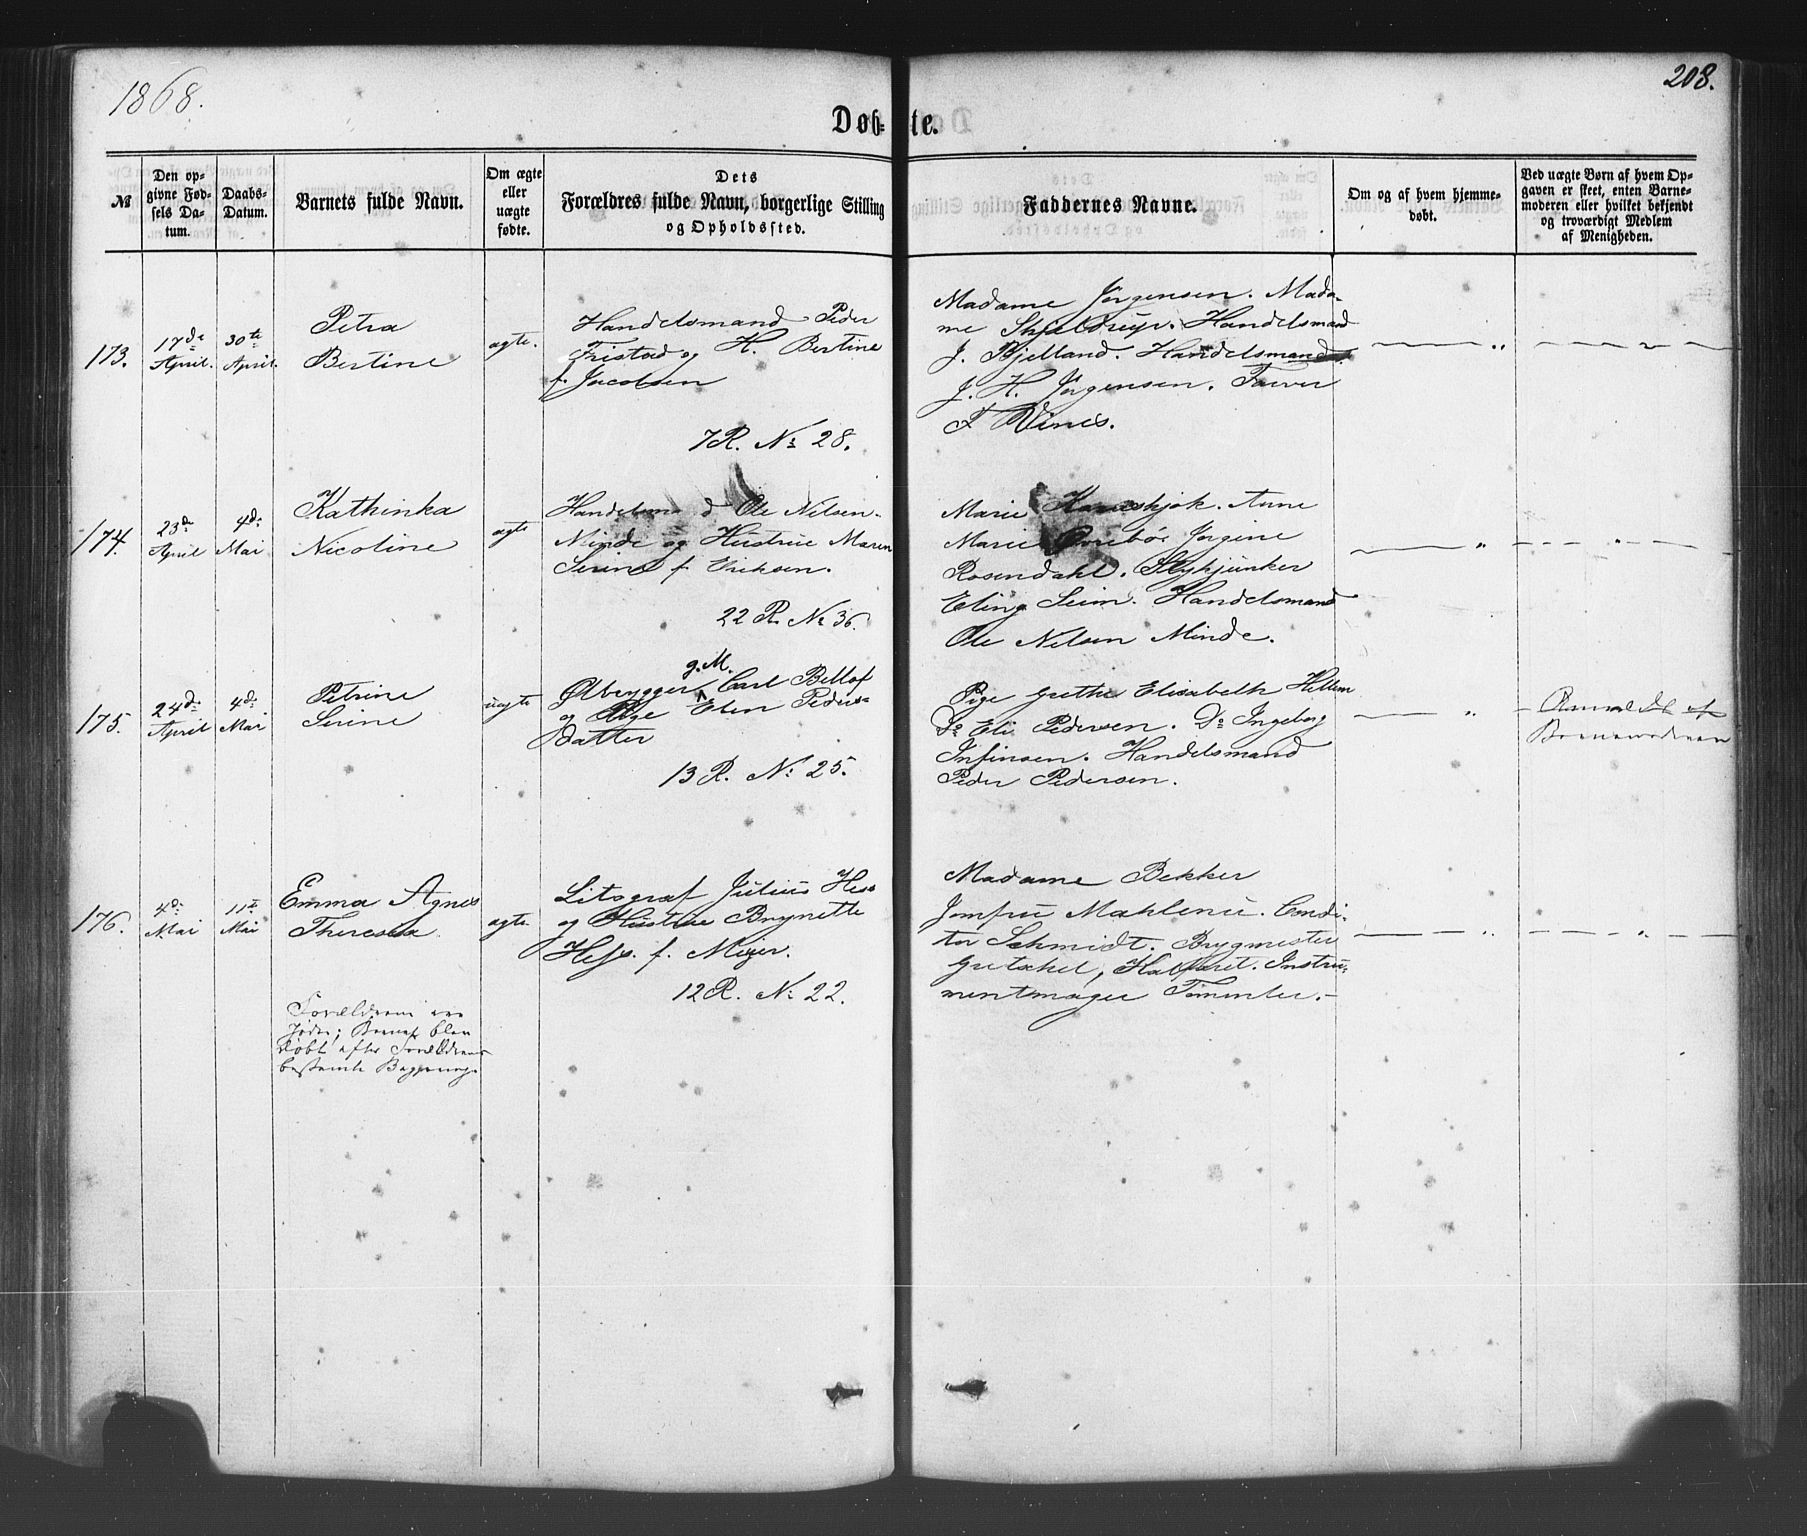 1868.
208.
Døb-te.
№
Den op-
givne Fød-
sels Da-
tum.
Daabs-
Datum.
Barnets fulde Navn.
Om ægte
eller
uægte
fødte.
Dets
Forældres fulde Navn, borgerlige Stilling
og Opholdssted.
Faddernes Navne.
Om og af hvem hjemme-
døbt.
Ved uægte Børn af hvem Op-
gaven er skeet, enten Barne-
moderen eller hvilket bekjendt
og troværdigt Medlem
af Menigheden.
173.
17de
April.
30te
April.
Petra
Bertine
ægte.
Handelsmand Peder
Fristad og H. Bertine
f. Jacobsen
7 R. No 28.
Madame Jørgensen. Mada-
me Skjeldrup. Handelsmand
J. Bjelland. Handelsmand
J. H. Jørgensen. Farver
Vines.
174.
23de
April
4de
Mai
Kathinka
Nicoline
ægte
Ole Nilsen
Minde og Hustrue Maren
Serine f. Eriksen.
22 R. No 36.
Marie Anne
Marie Jørgine
Rosendahl. Stykjunker
Eling Seim. Handelsmand
Ole Nilsen Minde.
175.
24de
April
4de
Mai
Petrine
Serine
uægte
g. M.
Ølbrygger Carl Bellof
og Pige Elen Peders-
datter
13 R. No 25.
Pige Grethe Elisabeth Hellem
Do Eli Pedersen. Do Ingeborg
Infinsen. Handelsmand
Peder Pedersen.
Anmeldt af
Barnemoderen
176.
4de
Mai
11te
Mai
Emma Agnes
Theresea
ægte.
Litograf Julius Hess
og Hustrue Brynette
Hess. f. Meijer.
12 R. No 22.
Madame Bekker
Jomfru Mahlenu. Condi-
tor Schmidt. Brygmester
Gretschel, Instru-
mentmager
Forældrene ere
Jøder; Barnet blev
døbt efter Forældrenes
bestemte Begjering.